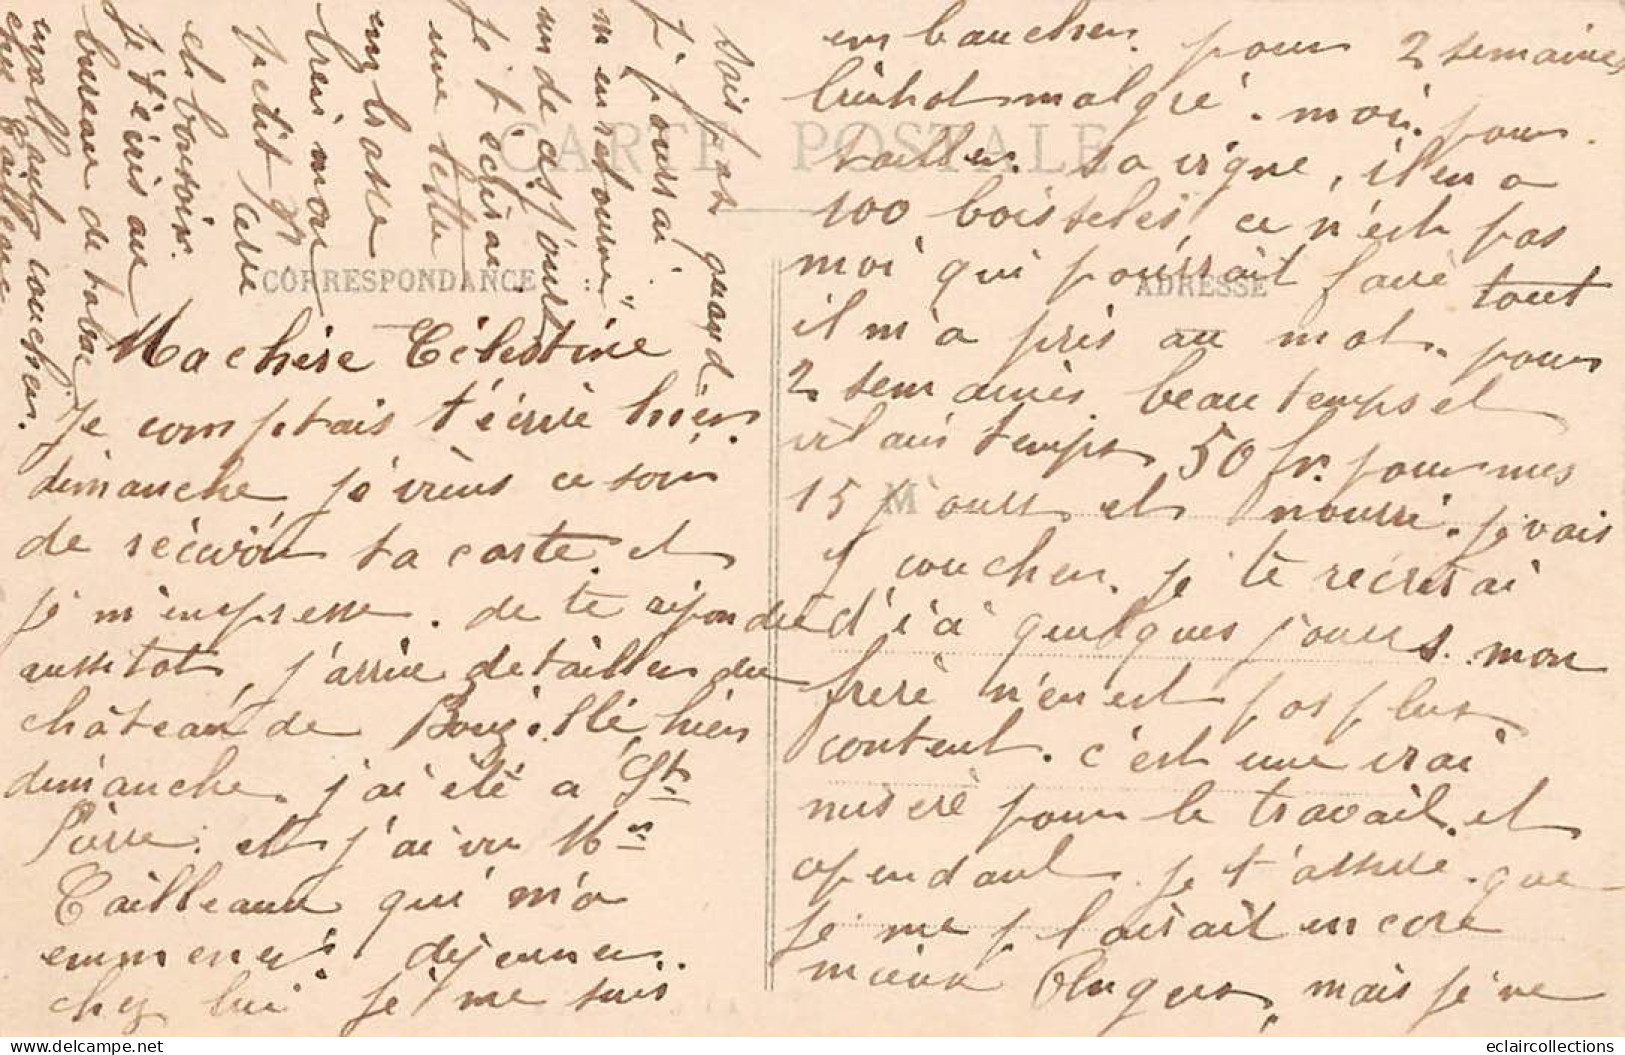 CARTE POSTALE
CORRESPONDANCE
ADRESSE
M
Ma chère Célestine
Je comptais t'écrire hier
dimanche, je viens ce soir
de recevoir ta carte et
je m'empresse de te répondre
aussitôt, j'arrive de tailler du
château de Bouzillé, hier
dimanche. j'ai été a St
Pierre. et j'ai vu Mr
Tailleaux qui m'a
emmener déjeuner.
chez lui je me suis
embaucher. pour 2 semaines
malgré. moi. pour
tailler sa vigne, il en a
100 boisselés, ce n'est pas
moi qui pourrait faire tout
il m'a pris au mot. pour
2 semaines beau temps et
vilain temps 50 fr. pour mes
15 jours et nourri. je vais
y coucher. je te récrirai
d'ici à quelques jours. mon
frère n'en est pas plus
content. c'est une vrai
misere pour le travail. et
cependant je t'assure. que
je me plairait encore
mieux Angers, mais je ne
sais pas quand
j'y pourrai.
m'en retourné
un de ces jours
je t'écrirai
une lettre
embrasse
bien mon
petit
et bonsoir.
je t'écris au
bureau de tabac
en allant coucher
chez Tailleaux
eclaircollections - www.delcampe.net